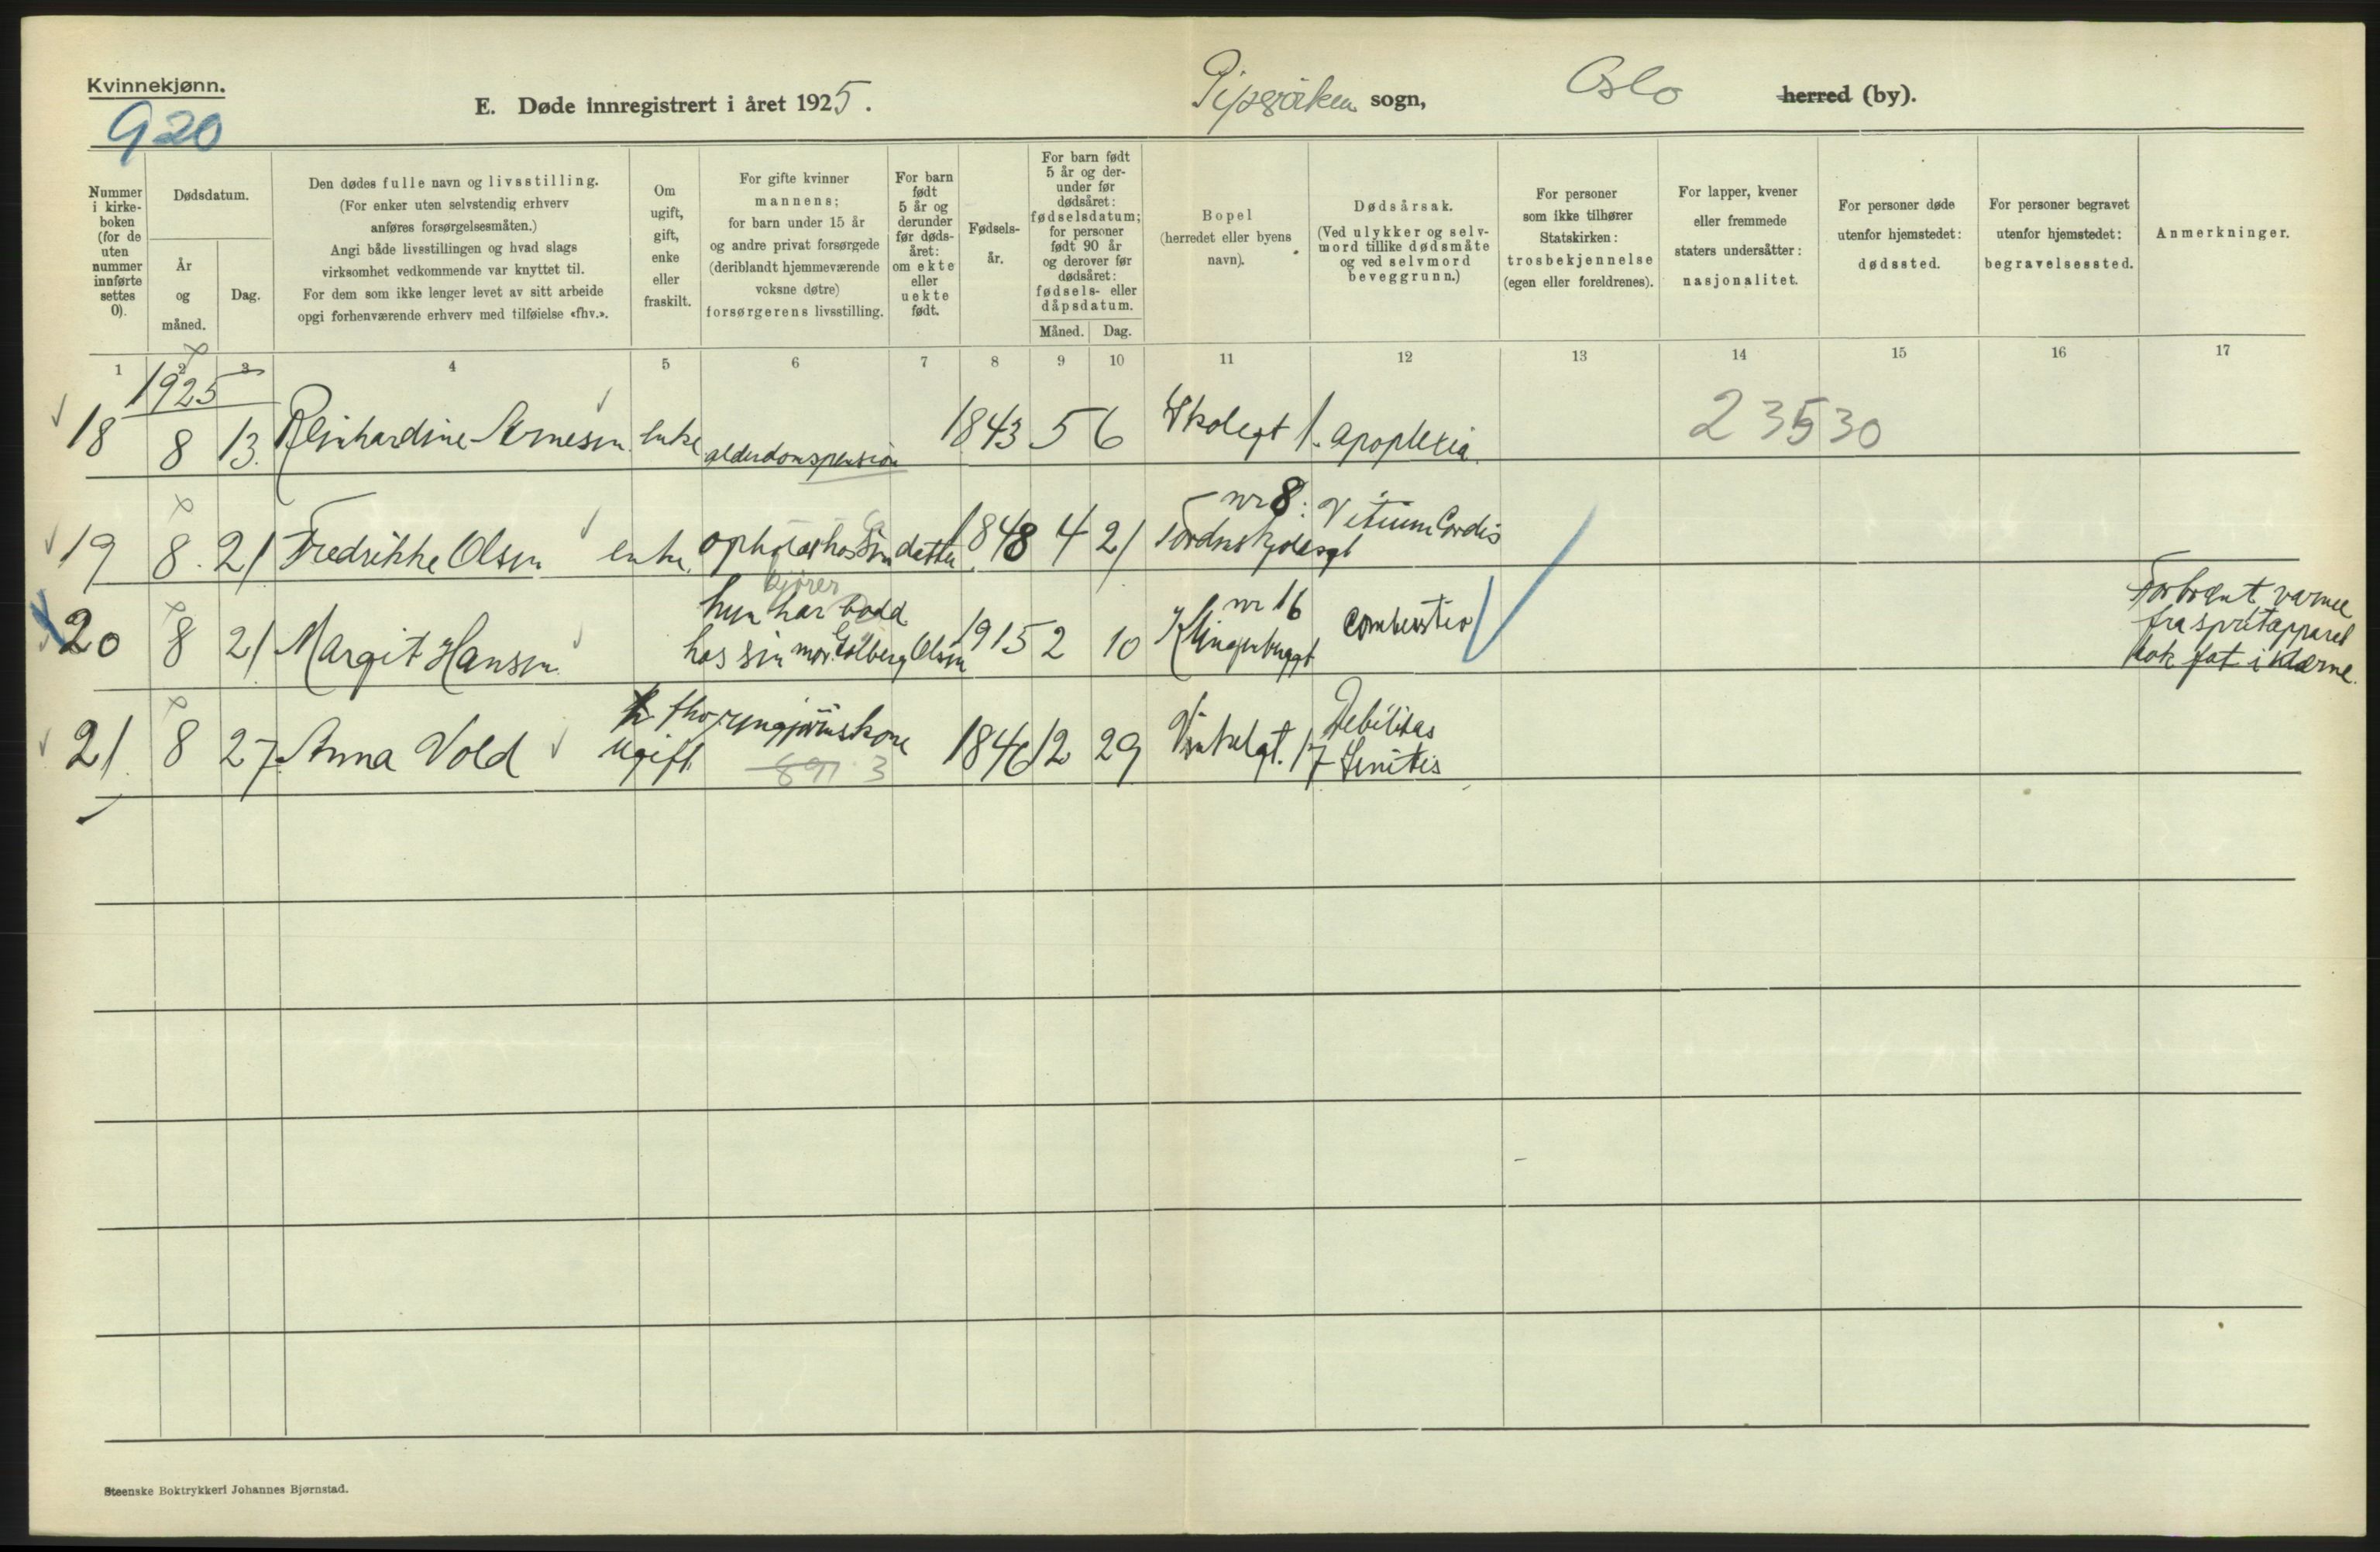 Kvinnekjønn.
920
E. Døde innregistrert i året 1925.
sogn,
Oslo
herred (by).
Nummer i kirke- boken (for de uten nummer innførte settes 0).
Dødsdatum.
År og måned.
Dag.
Den dødes fulle navn og livsstilling.
(For enker uten selvstendig erhverv
anføres forsørgelsesmåten.)
Angi både livsstillingen og hvad slags
virksomhet vedkommende var knyttet til.
For dem som ikke lenger levet av sitt arbeide
opgi forhenværende erhverv med tilføielse «fhv.».
Om ugift, gift, enke eller fraskilt.
For gifte kvinner
mannens;
for barn under 15 år
og andre privat forsørgede
(deriblandt hjemmeværende
voksne døtre)
forsørgerens livsstilling.
For barn født 5 år og derunder før døds- året: om ekte eller uekte født.
Fødsels- år.
For barn født 5 år og der- under før dødsåret: fødselsdatum; for personer født 90 år og derover før dødsåret: fødsels- eller dåpsdatum.
Måned.
Dag.
Bopel
(herredet eller byens
navn).
Dødsårsak.
(Ved ulykker og selv-
mord tillike dødsmåte
og ved selvmord
beveggrunn.)
For personer
som ikke tilhører
Statskirken:
trosbekjennelse
(egen eller foreldrenes).
For lapper, kvener
eller fremmede
staters undersåtter:
nasjonalitet.
For personer døde
utenfor hjemstedet:
dødssted.
For personer begravet
utenfor hjemstedet:
begravelsessted.
Anmerkninger.
1 2 3 4 5 6 7 8 9 10 11 12 13 14 15 16 17
1925
18 8 13. Reinhardine Arnesen enke alderdomspension 1843 5 6 Skolegt 1. apoplexia. 23530
nr 8.
19 8. 21 Fredrikke Olsen enke. datter. 1848 4 21 Vitium Cordis
hun har bodd
nr 16
20 8 21 Margit Hansen hos sin mor. Olsen 1915 2 10 Combustio
Forbrent varme
fra spritapparat
tok fat i klærne.
21 8 27 Anna Vold ugift 1846 12 29 Vinkelgt. 17 Debilitas
Senilis
Steenske Boktrykkeri Johannes Bjørnstad.